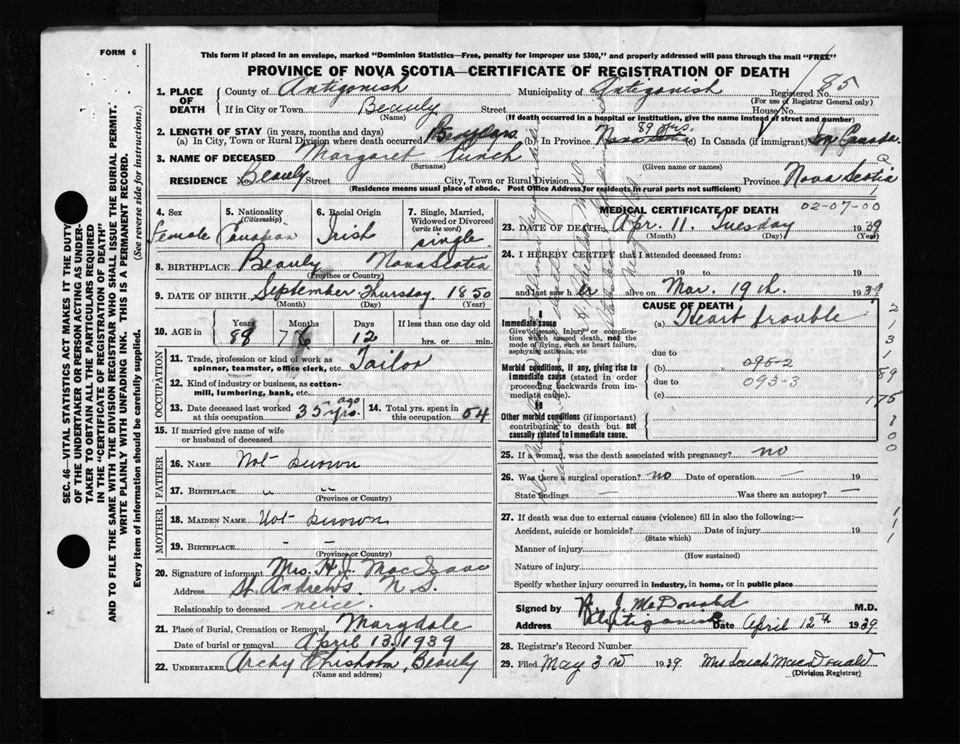 FORM 6
This form if placed in an envelope, marked "Dominion Statistics—Free, penalty for improper use $300," and properly addressed will pass through the mail "FREE"
PROVINCE OF NOVA SCOTIA—CERTIFICATE OF REGISTRATION OF DEATH
85
1. PLACE OF DEATH
County of Antigonish Municipality of Antigonish Registered No.
(For use of Registrar General only)
If in City or Town Beauly Street House No.
(Name) (If death occurred in a hospital or institution, give the name instead of street and number)
2. LENGTH OF STAY (in years, months and days)
(a) In City, Town or Rural Division where death occurred (b) In Province 89 yrs. (c) In Canada (if immigrant) Canada
3. NAME OF DECEASED Margaret
(Surname) (Given name or names)
RESIDENCE No. Beauly Street City, Town or Rural Division Province Nova Scotia
(Residence means usual place of abode. Post Office Address for residents in rural parts not sufficient)
4. Sex Female
5. Nationality (Citizenship) Canadian
6. Racial Origin Irish
7. Single, Married, Widowed or Divorced (write the word) single
8. BIRTHPLACE Beauly Nova Scotia
(Province or Country)
9. DATE OF BIRTH September Thursday 1850
(Month) (Day) (Year)
10. AGE in Years 88 Months 7 Days 12 If less than one day old hrs. or min.
OCCUPATION
11. Trade, profession or kind of work as spinner, teamster, office clerk, etc. Tailor
12. Kind of industry or business, as cotton-mill, lumbering, bank, etc.
13. Date deceased last worked at this occupation 35 yrs. ago
14. Total yrs. spent in this occupation 54
15. If married give name of wife or husband of deceased
FATHER
16. NAME Not known
17. BIRTHPLACE
(Province or Country)
MOTHER
18. MAIDEN NAME Not known
19. BIRTHPLACE - -
(Province or Country)
20. Signature of informant Mrs. H. J. MacIsaac
Address St. Andrews N.S.
Relationship to deceased neice.
21. Place of Burial, Cremation or Removal Marydale
Date of burial or removal April 13, 1939
22. UNDERTAKER Archy Chisholm, Beauly
(Name and address)
MEDICAL CERTIFICATE OF DEATH
02-07-00
23. DATE OF DEATH Apr. 11. Tuesday 1939
(Month) (Day) (Year)
24. I HEREBY CERTIFY that I attended deceased from:
19 to 19
and last saw her alive on Mar. 19th. 1939
CAUSE OF DEATH
I
Immediate cause
Give disease, injury or complication which caused death, not the mode of dying, such as heart failure, asphyxia, astienia, etc
(a) Heart trouble
due to
Morbid conditions, if any, giving rise to immediate cause (stated in order proceeding backwards from immediate cause).
(b) 095-2
due to 093-3
(c)
II
Other morbid conditions (if important) contributing to death but not causally related to immediate cause.
25. If a woman, was the death associated with pregnancy? no
26. Was there a surgical operation? no Date of operation —
State findings — Was there an autopsy? —
27. If death was due to external causes (violence) fill in also the following:—
Accident, suicide or homicide? Date of injury 19
(State which)
Manner of injury
(How sustained)
Nature of injury
Specify whether injury occurred in industry, in home, or in public place
Signed by J. McDonald M.D.
Address Antigonish Date April 12th 1939
28. Registrar's Record Number
29. Filed May 3 1939 Mrs Sarah MacDonald
(Division Registrar)
SEC. 46—VITAL STATISTICS ACT MAKES IT THE DUTY
OF THE UNDERTAKER OR PERSON ACTING AS UNDER-
TAKER TO OBTAIN ALL THE PARTICULARS REQUIRED
IN THE "CERTIFICATE OF REGISTRATION OF DEATH"
AND TO FILE THE SAME WITH THE DIVISION REGISTRAR WHO SHALL ISSUE THE BURIAL PERMIT.
WRITE PLAINLY WITH UNFADING INK. THIS IS A PERMANENT RECORD.
Every item of information should be carefully supplied. (See reverse side for instructions.)